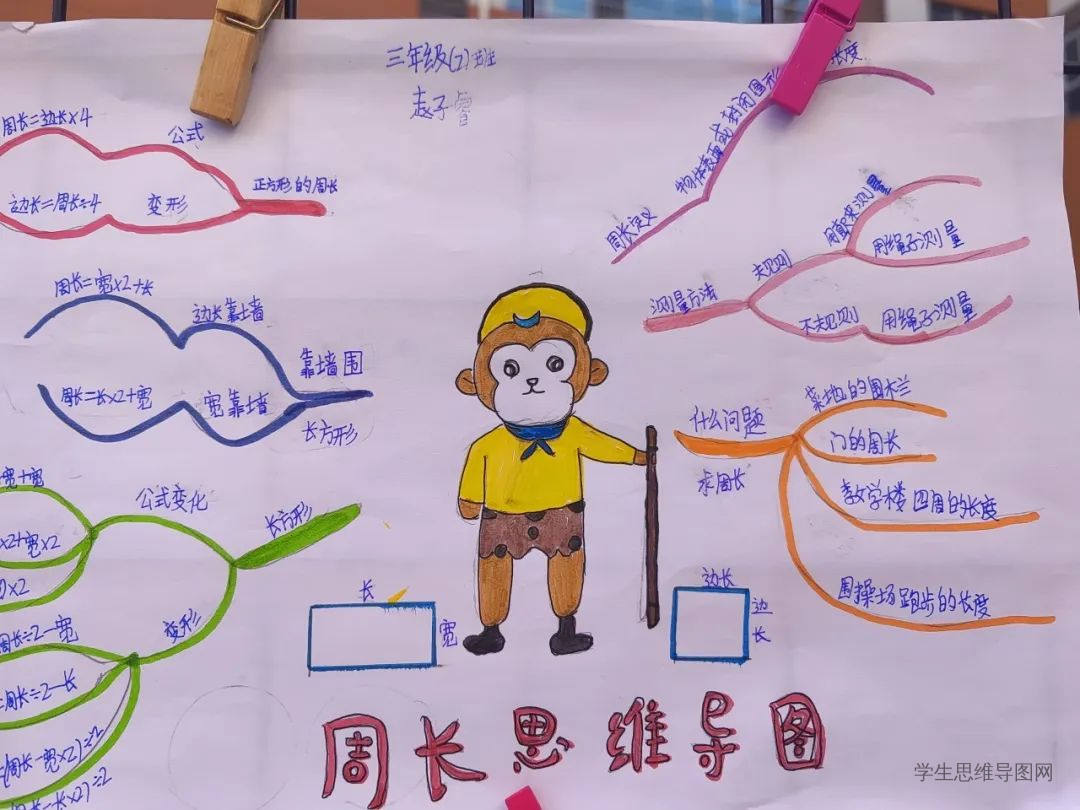 三年级(7)班
赵子
周长=边长×4
公式
正方形的周长
边长=周长÷4
变形
周长=宽×2+长
边长靠墙
靠墙围
周长=长×2+宽
宽靠墙
长方形
公式变化
长方形
×2+宽×2
)×2
变形
周长÷2-宽
=周长÷2-长
(周长-宽×2)÷2
长-长×2)÷2
周长定义
物体表面或封闭图形
长度
测量方法
规则
用绳子测量
不规则
用绳子测量
什么问题
求周长
菜地的围木兰
门的周长
教学楼四周的长度
围操场跑步的长度
长
宽
边长
边长
周长思维导图
学生思维导图网